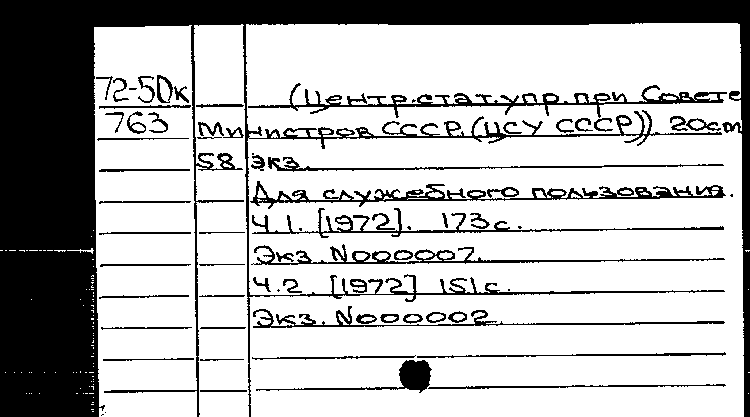 72-50к
763
(Центр.стат.упр.при Совете
Министров СССР.(ЦСУ СССР)). 20см
58 экз.
Для служебного пользования.
Ч.1. [1972]. 173с.
Экз. N000007.
Ч.2. [1972] 151с.
Экз. N000002